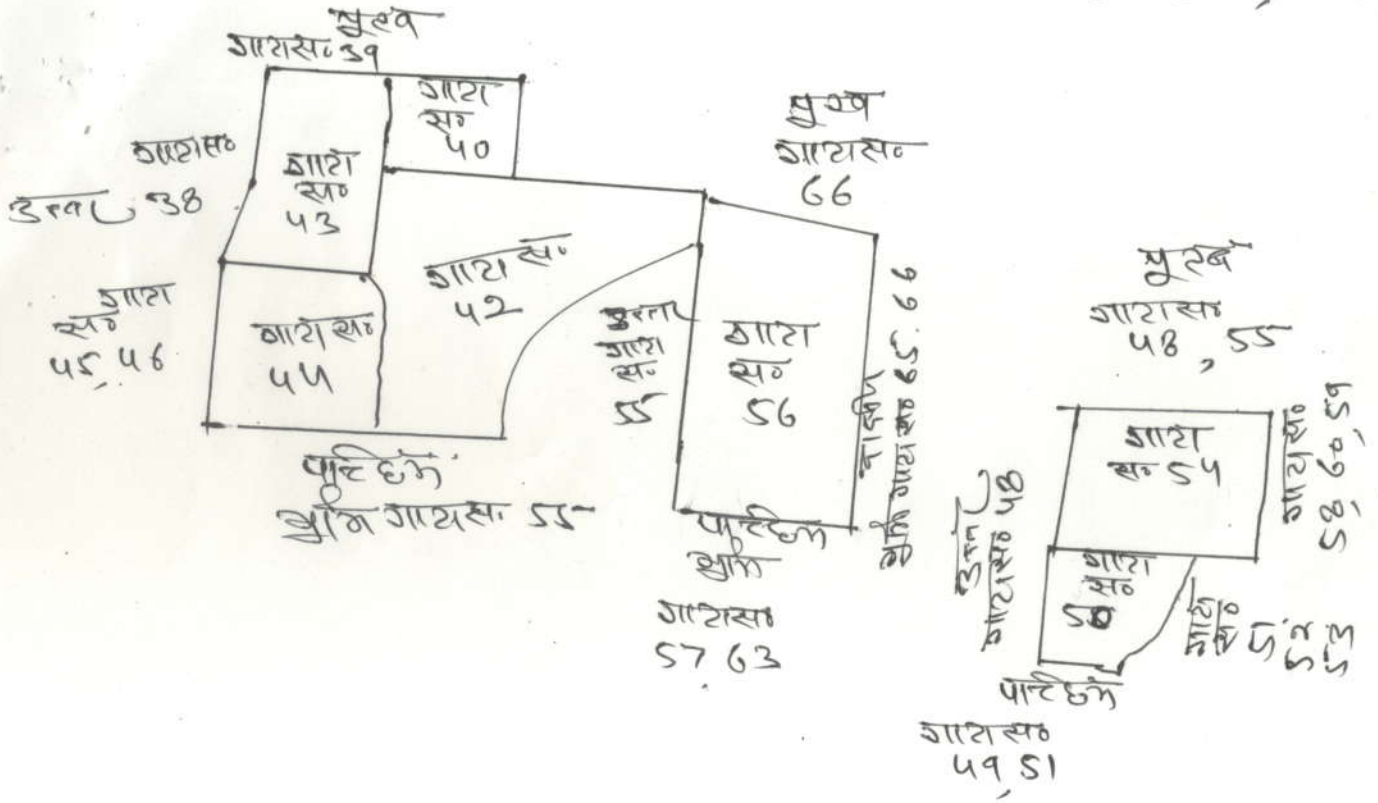 पुरब
गाटा सं० 39
गाटा
सं०
40
गाटा सं०
उत्तर 38
गाटा
सं०
43
गाटा
सं०
45, 46
गाटा सं०
44
गाटा सं०
42
पश्चिम
भूमि गाटा सं० 55
पुरब
गाटा सं०
66
उत्तर
गाटा
सं०
55
गाटा
सं०
56
भूमि गाटा सं० 65, 66
पश्चिम
भूमि
गाटा सं०
57, 63
पुरब
गाटा सं०
48, 55
गाटा
सं० 54
गाटा सं०
58, 60, 59
उत्तर
गाटा सं० 48
गाटा
सं०
50
गाटा
सं०
51
52
53
पश्चिम
गाटा सं०
49, 51